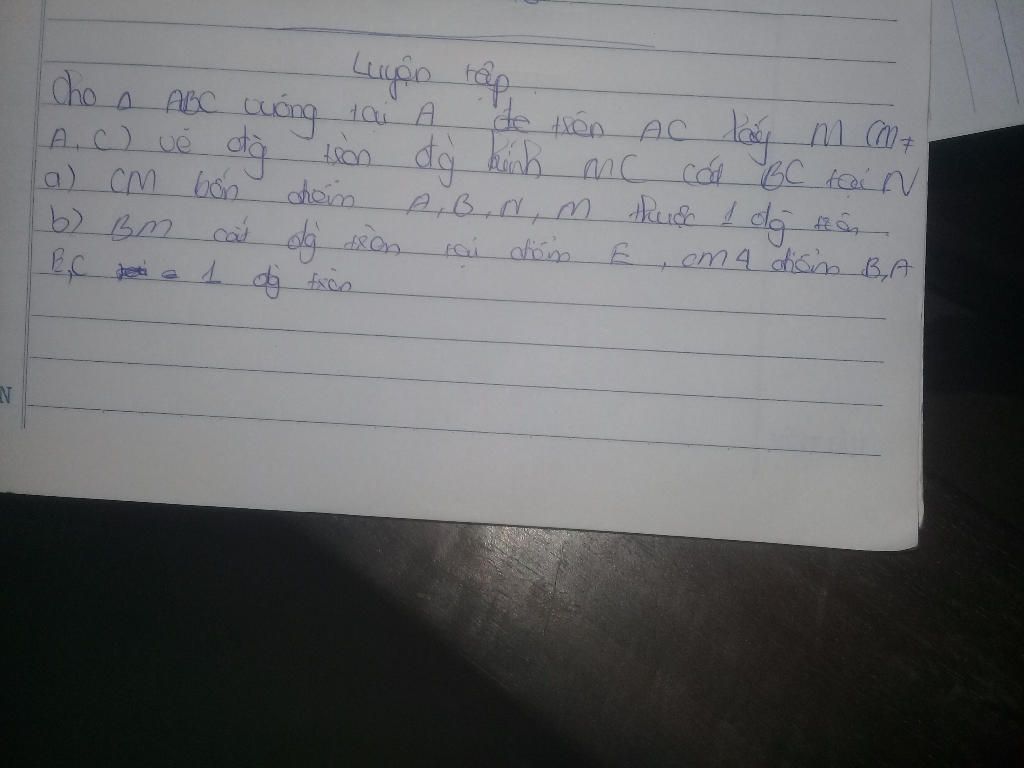 Luyện tập
Cho △ ABC vuông tại A trên AC lấy M (M≠
A, C) vẽ đg tròn đg kính MC cắt BC tại N
a) CM bốn điểm A, B, N, M thuộc 1 đg tròn
b) BM cắt đg tròn tại điểm E, cm 4 điểm B, A
E, C 1 đg tròn
N